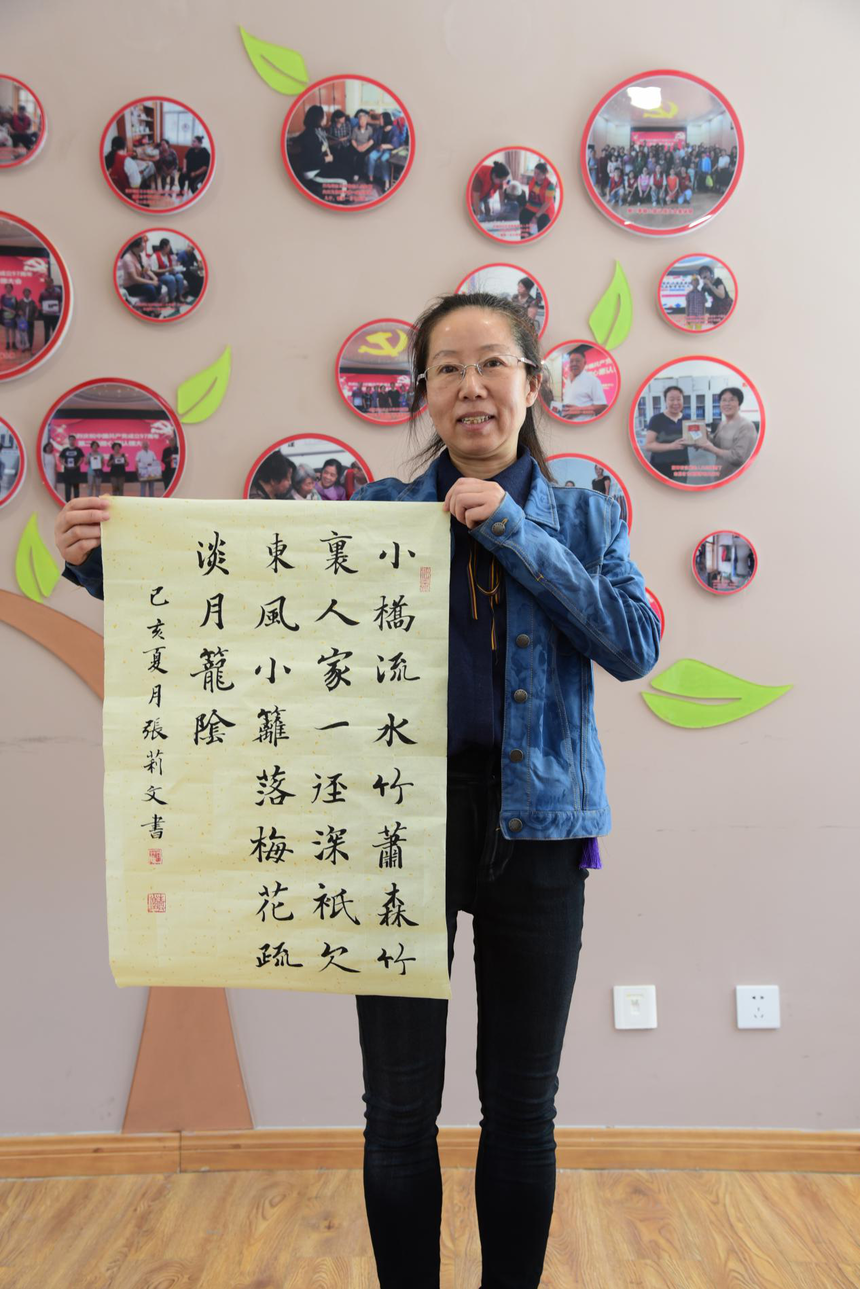 小橋流水竹蕭森竹
裏人家一逕深衹欠
東風小籬落梅花疏
淡月籠陰
己亥夏月張莉文書